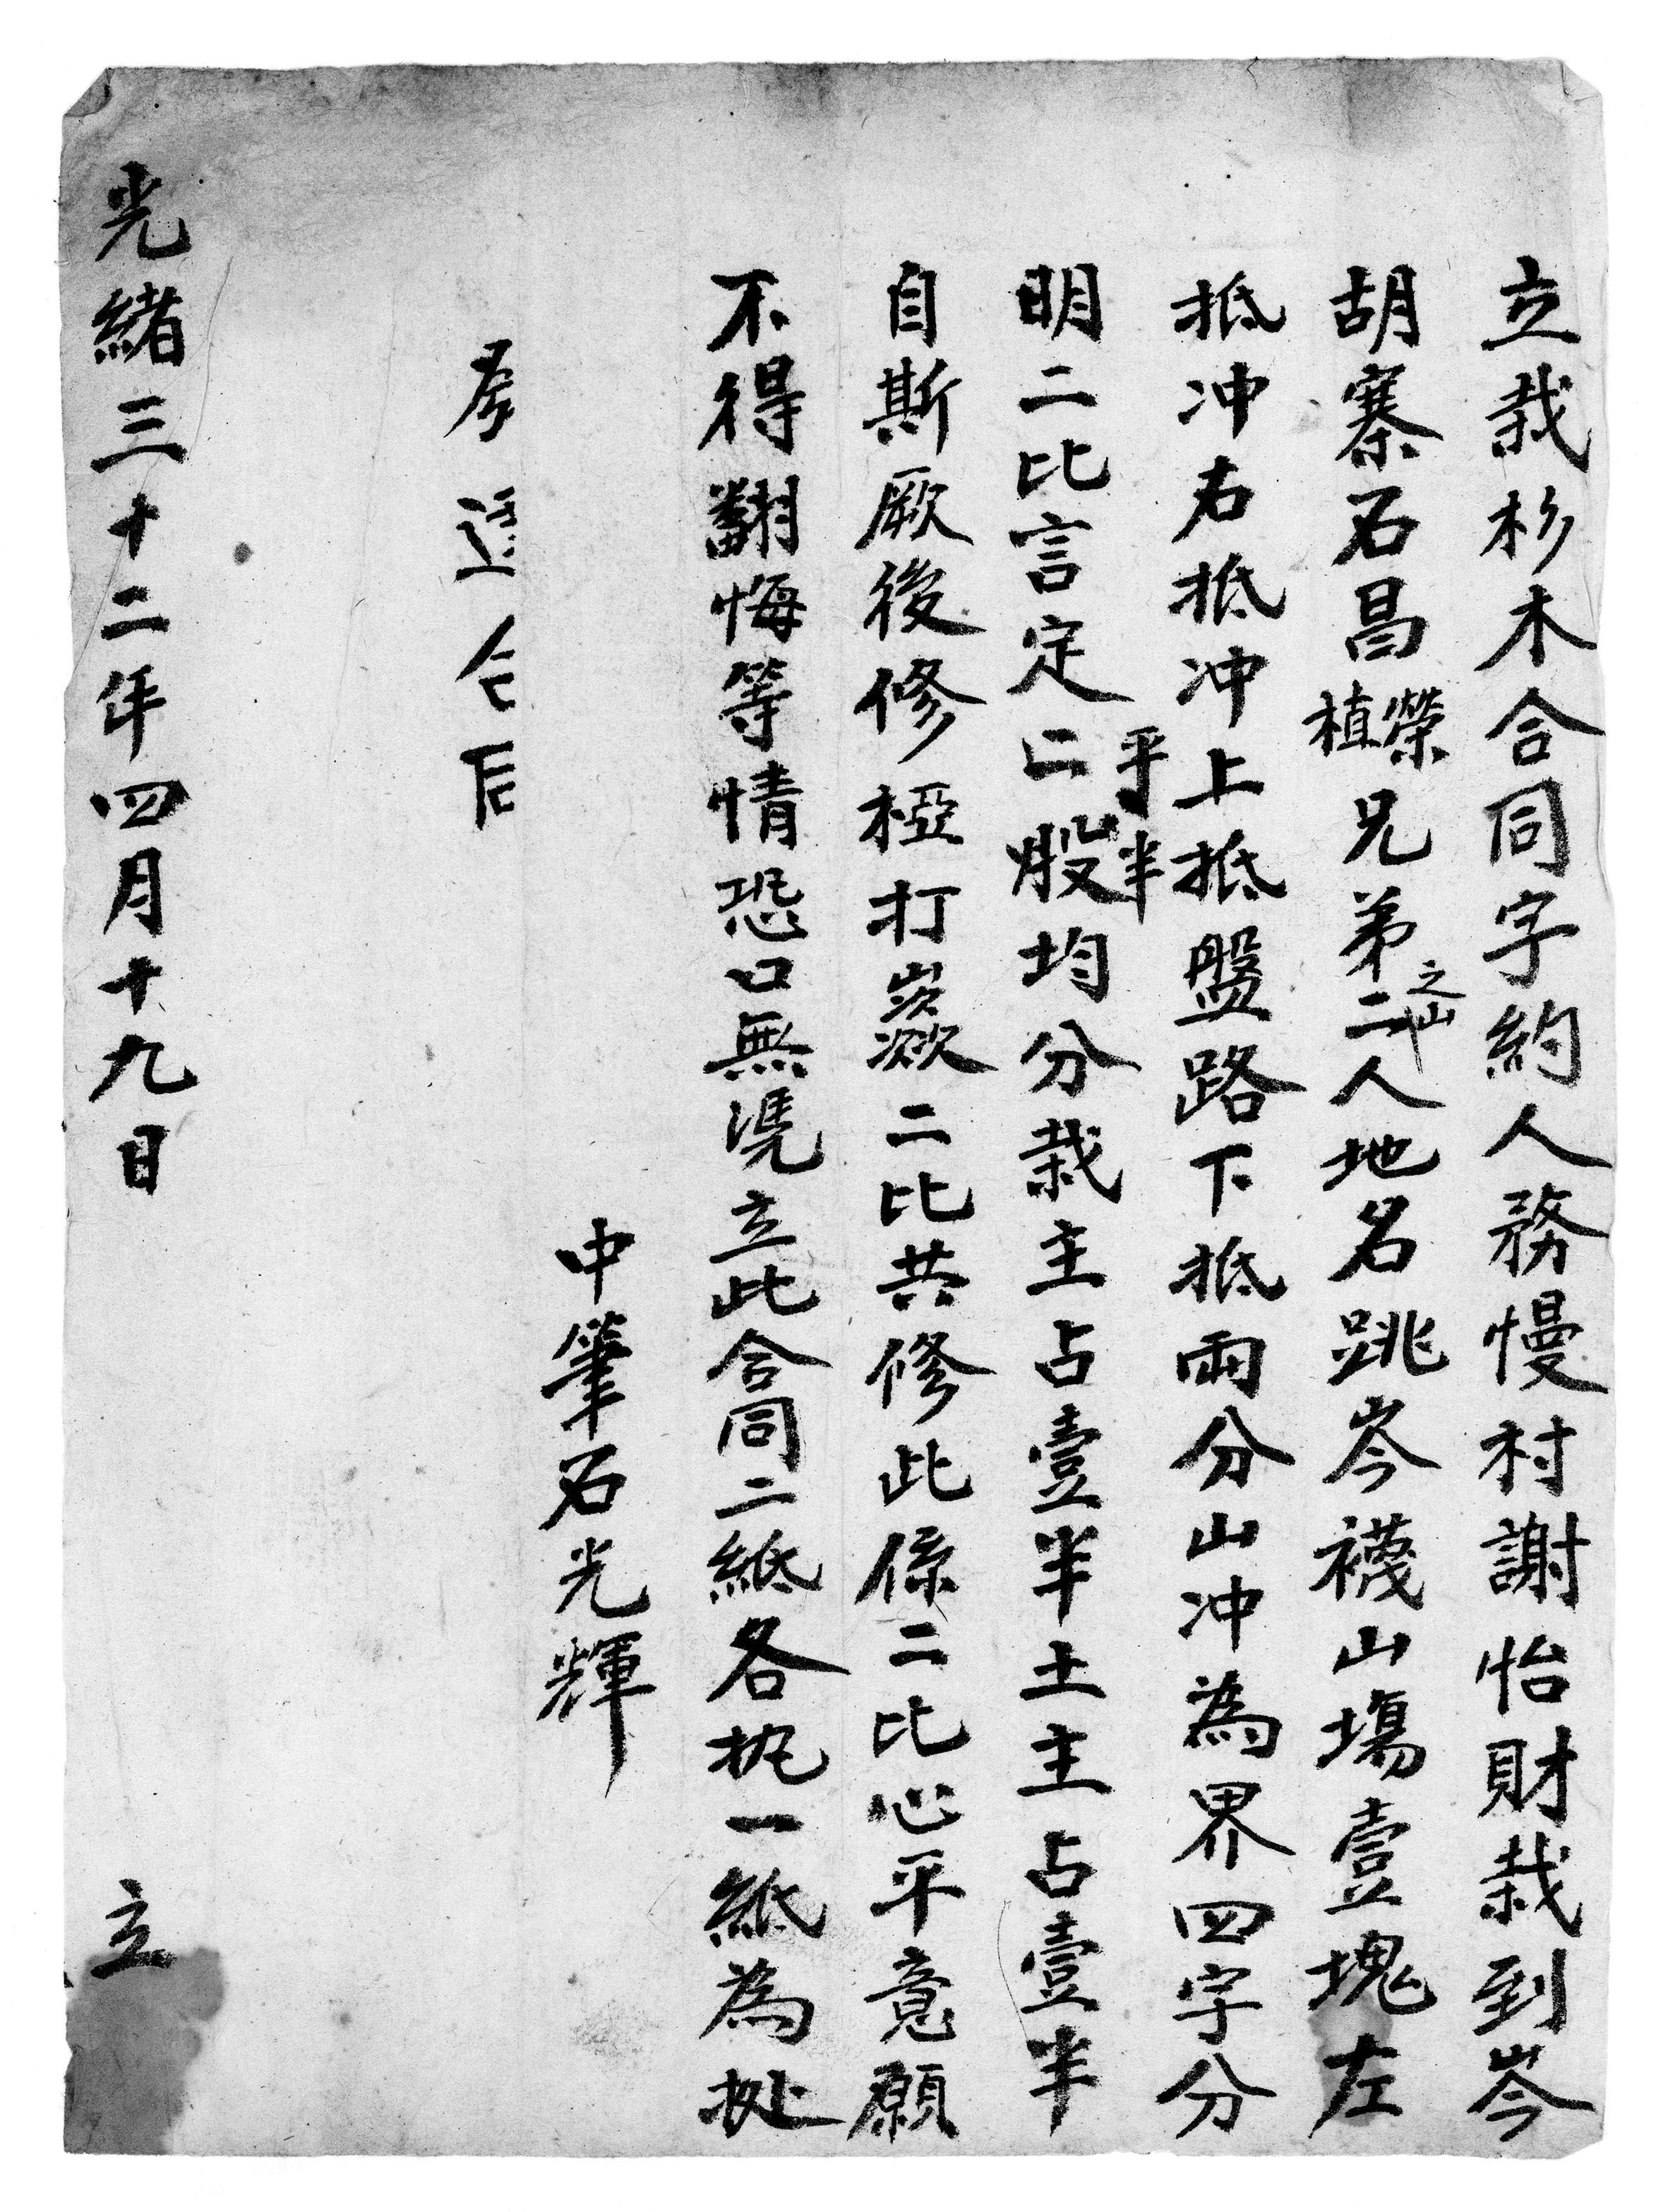 立栽杉木合同字約人務慢村謝怡財栽到岑
胡寨石昌榮植兄弟二人之山地名跳岑襪山塲壹塊左
抵冲右抵冲上抵盤路下抵兩分山冲為界四字分
明二比言定二股平半均分栽主占壹半土主占壹半
自斯厥後修椏打 二比共修此係二比心平意願
不得翻悔等情恐口無凴立此合同二紙各执一紙為㨿
中筆石光輝
光緒三十二年四月十九日 立